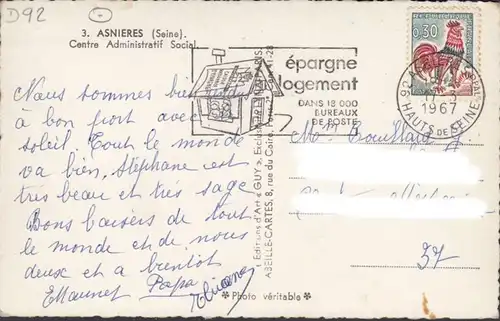 D92
3. ASNIERES (Seine).
Centre Administratif Social.
Nous sommes
à bon port avec
soleil. Tout le monde
va bien, Stéphane est
très beau et très sage
Bons baisers de tout
le monde et de nous
deux et a bientot
Papa
épargne
logement
DANS 18 000
BUREAUX
DE POSTE
0,30
1967
HAUTS DE SEINE
Editions d'Art « GUY », PARIS.
ABEILLE-CARTES, 8, rue du Caire,
37
* Photo véritable *